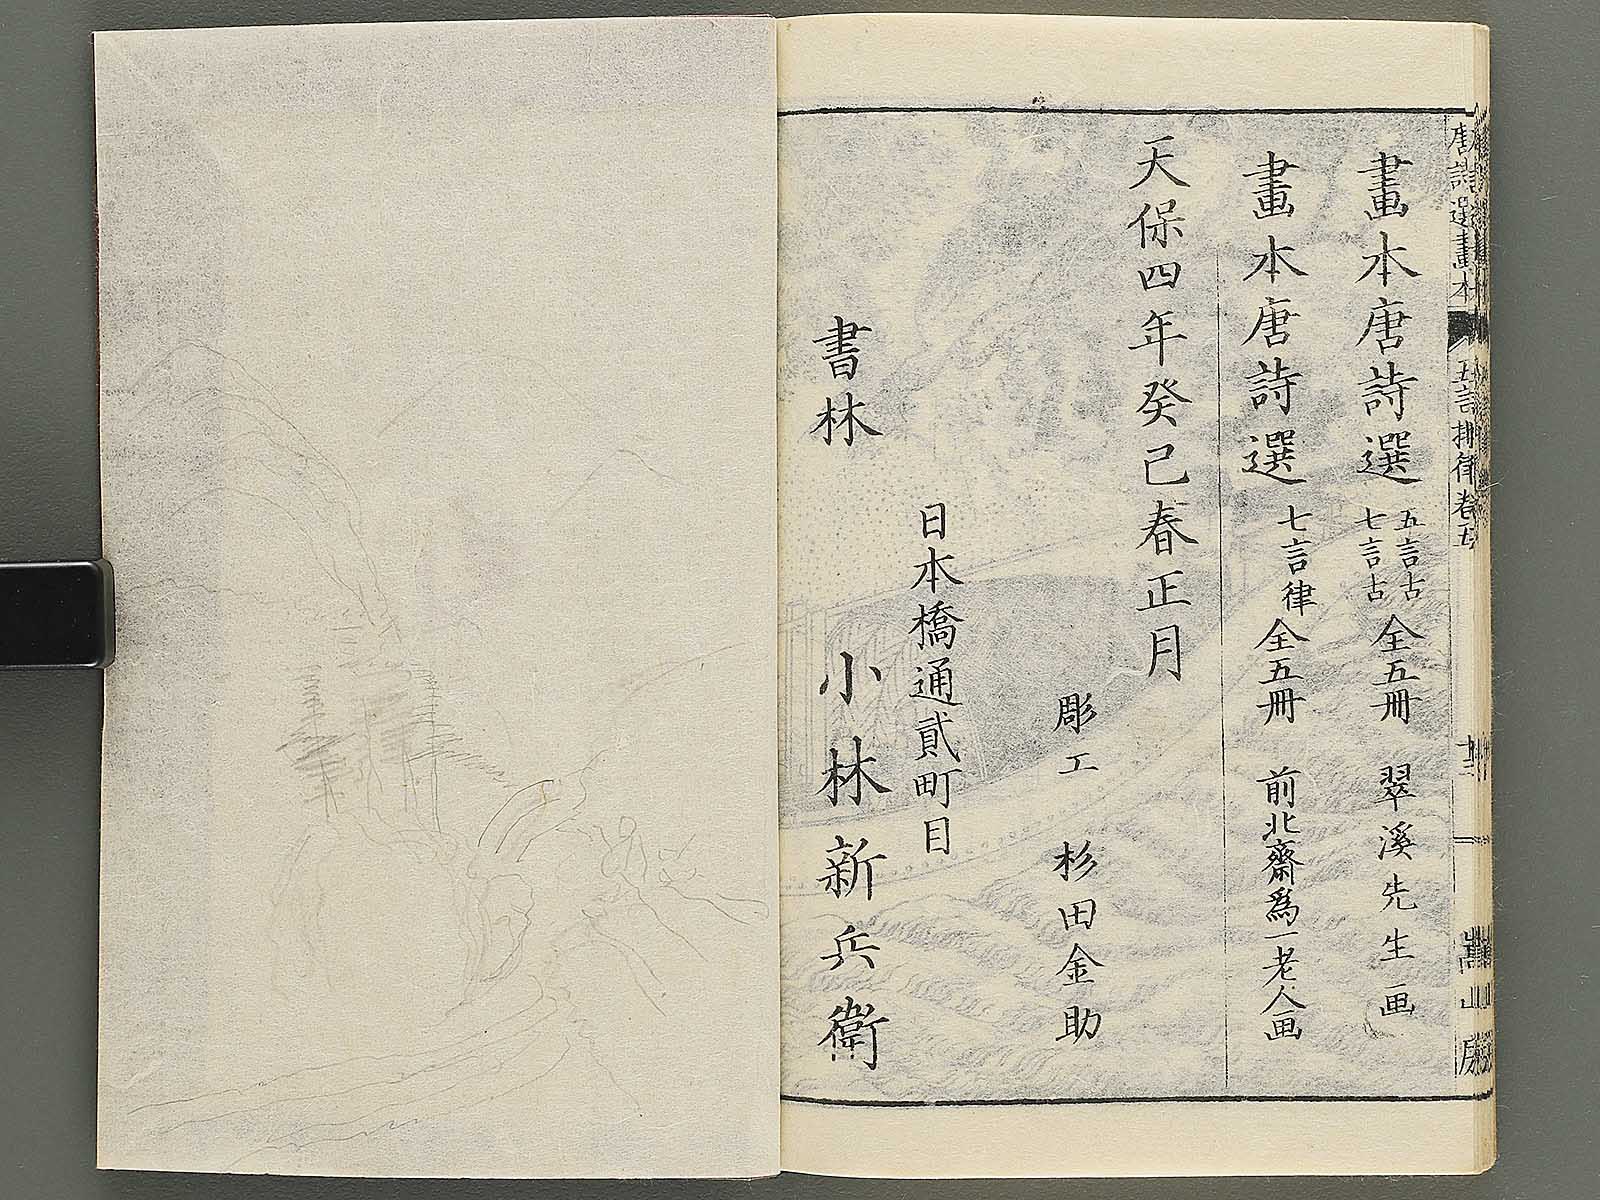 唐詩選畫本 五言排律 卷五
嵩山房
畫本唐詩選 五言古 七言古 全五冊 翠溪先生画
畫本唐詩選 七言律 全五冊 前北齋爲一老人画
天保四年癸巳春正月
彫工 杉田金助
日本橋通貳町目
書林 小林新兵衛